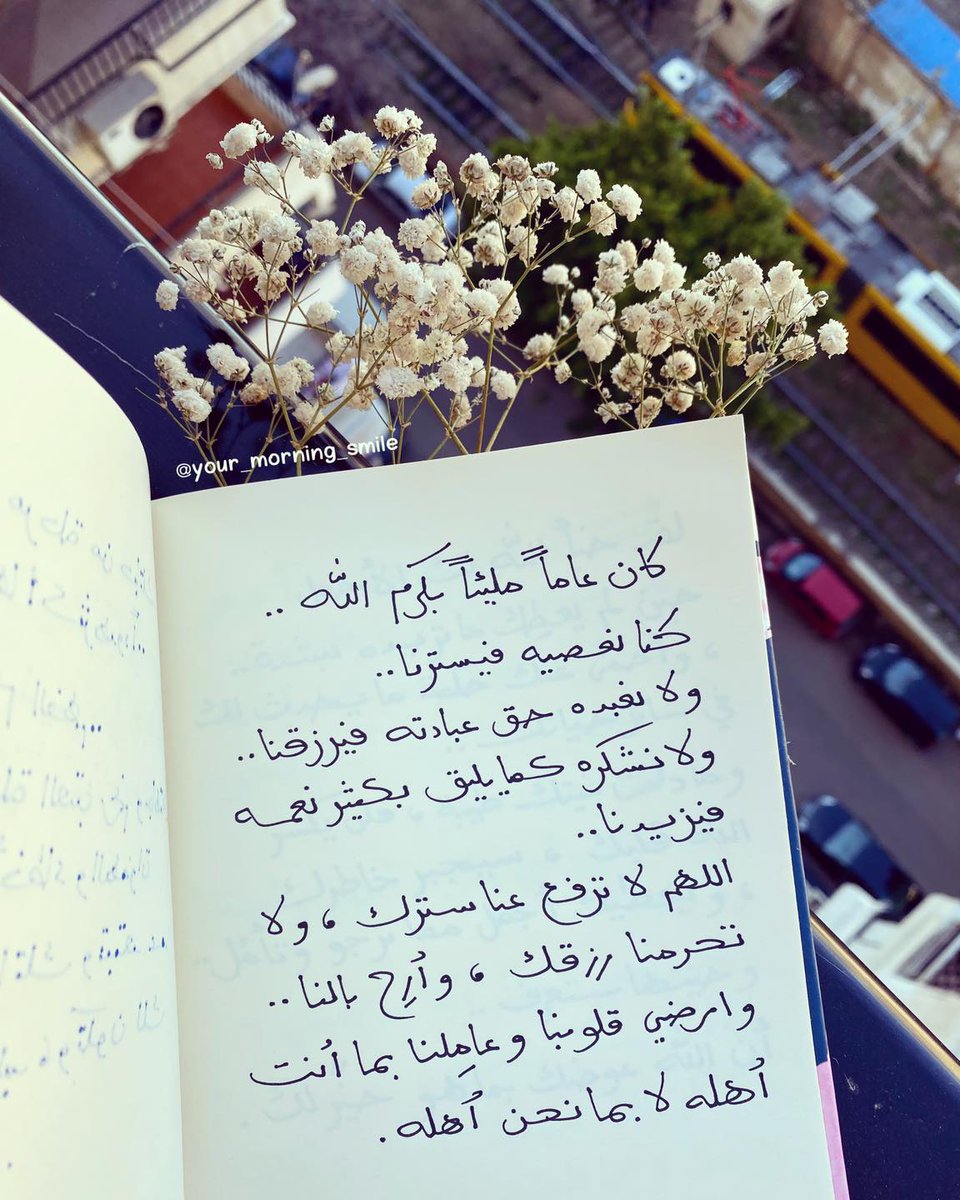 @your_morning_smile
كان عاماً مليئاً بكرم الله ..
كنا نعصيه فيسترنا..
ولا نعبده حق عبادته فيرزقنا..
ولا نشكره كما يليق بكثير نعمه
فيزيدنا..
اللهم لا ترفع عنا سترك ، ولا
تحرمنا رزقك ، وأرِح بالنا ..
وارضي قلوبنا وعامِلنا بما أنت
أهله لا بما نحن أهله.